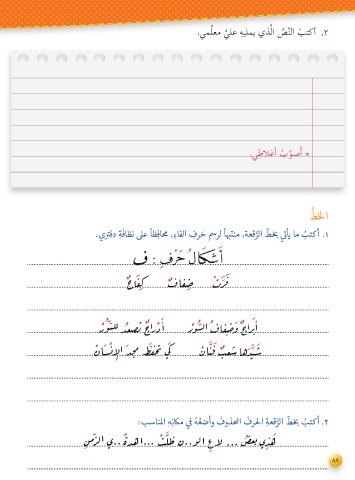 ٢. أكتبُ النَّصَّ الّذي يمليهِ عليَّ معلّمي:
* أُصوِّبُ أغلاطِي.
الخطُّ
١. أكتبُ ما يأتي بخطِّ الرُّقعة، منتبهاً لرسمِ حرفِ الفاءِ، محافِظاً على نظافةِ دفتري.
أَشْكَالُ حَرْفِ : ف
فَرَتْ ضِفافٌ كِفَاحٌ
أبراجٌ وَضِفافُ النُّورْ أَدْرَاجٌ تَصعدُ للنُّورْ
شَيَّدَها شَعبٌ فَنَّانْ كَي تَحْفَظَ مجدَ الإنْسَانْ
٢. أكتبُ بخطِّ الرُّقعةِ الحرفَ المحذوفَ وأضعُهُ في مكانِهِ المناسب:
هَذِي بعضُ ... لاعِ الو..ن ظَلَّتْ ...اهدةً ..ي الزَّمنِ
٨٨